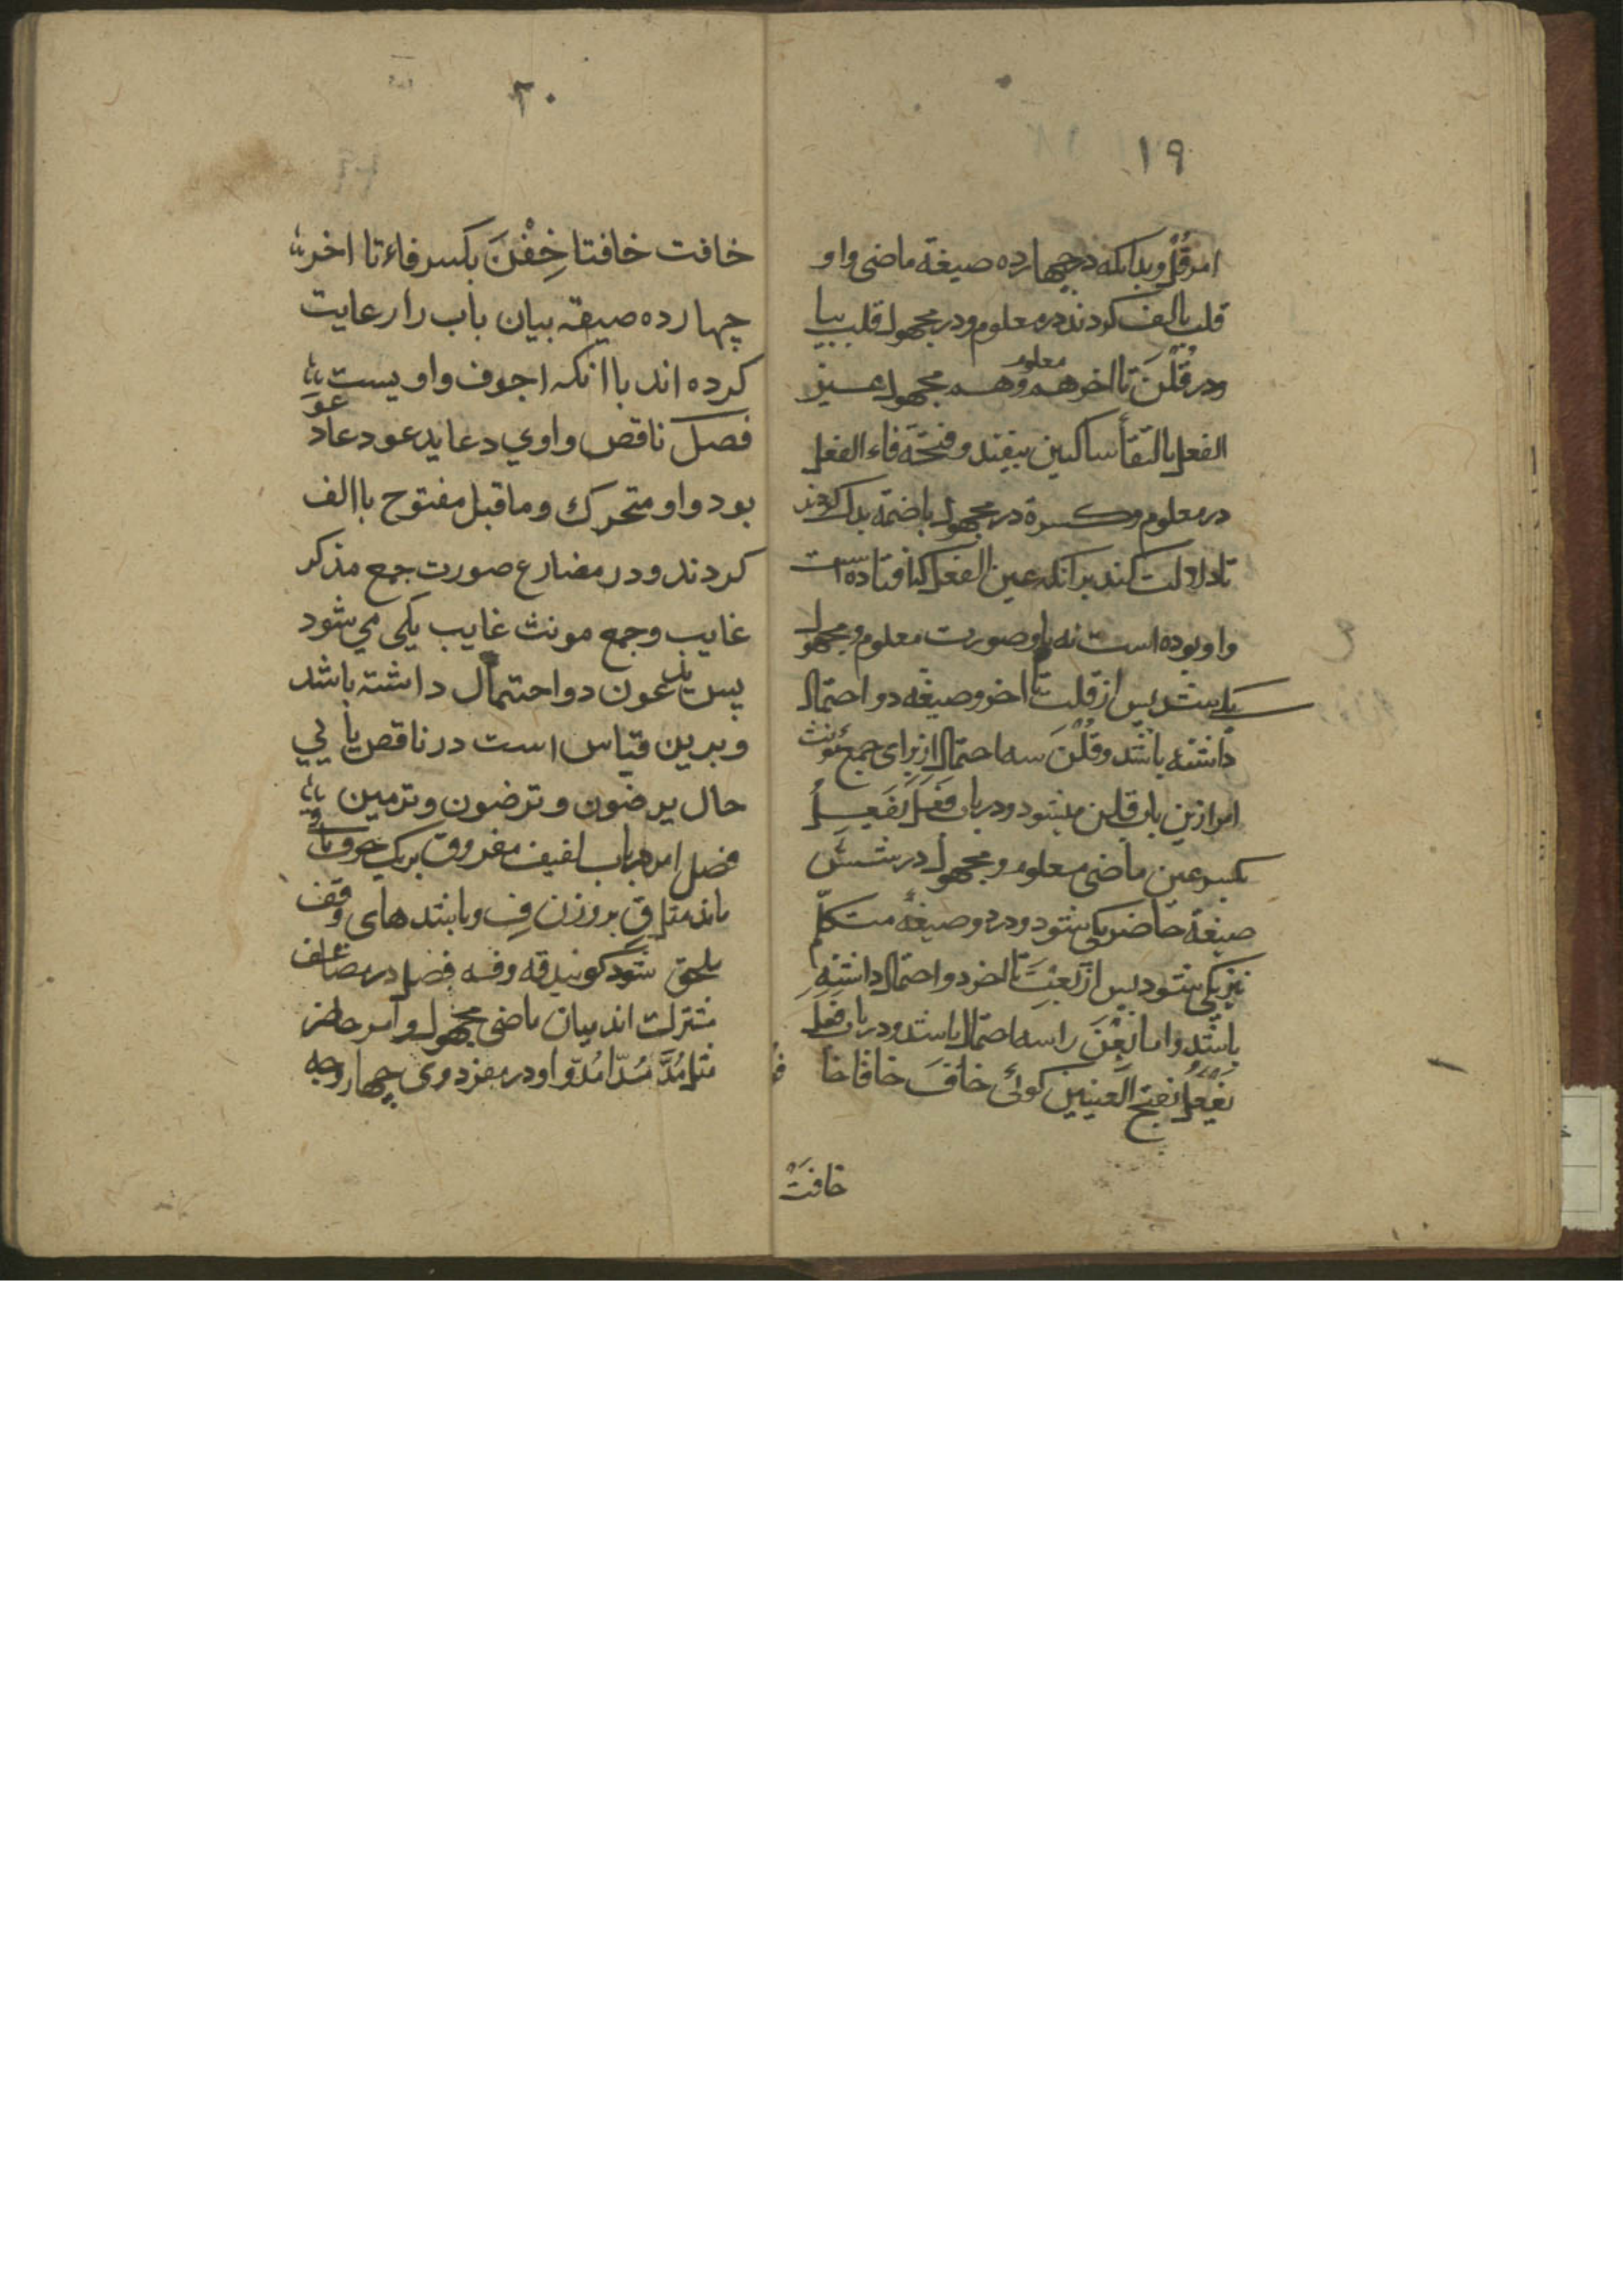 ١٩
امر قُلْ وبدانكه در چهارده صيغهٔ ماضى واو
قلب بالف كردند در معلوم ودر مجهول قلب بيا
ودر قُلْنَ تا اخر هم معلوم وهم مجهول عين
الفعل بالتقأ ساكنين بيفتد وفتحهٔ فاء الفعل
در معلوم وكسره در مجهول باضمه بدل كردند
تا دلالت كند برانكه عين الفعل كه افتاده است
واو بوده است نه يا وصورت معلوم ومجهول
يكيست پس از قلت تا اخر وصيغه دو احتمال
داشته باشد وقُلْنَ سه احتمال از براى جمع مؤنث
امر ازين باب قلن ميشود ودر باب فَعَلَ يَفْعِلُ
بكسر عين ماضى معلوم ومجهول در شش
صيغهٔ حاضر يكى شود ودر دو صيغهٔ متكلم
نيز يكى شود پس از بَعِتَ تا اخر دو احتمال داشته
باشد واما بِعْنَ را سه احتمال باشد ودر باب فعل
يَفْعَلُ بفتح العينين گوئى خافَ خافا خا فُ
خافَتْ
٢٠
خافت خافتا خِفْنَ بكسر فاء تا اخر
چهارده صيقه بيان باب را رعايت
كرده اند با انكه اجوف واويست
فصل ناقص واوي دعا يدعو دعا دعوَ
بود واو متحرك وماقبل مفتوح باالف
كردند ودر مضارع صورت جمع مذكر
غايب وجمع مونث غايب يكي مي شود
پس يدعون دو احتمال داشته باشد
وبرين قياس است در ناقص يأيي
حال يرضون وترضون وترمين
فصل امر در باب لفيف مفروق بر يك حرف
ماند مثل قِ بر وزن فِ وبايتد هاى وقف
ملحق شود گويند قه وفه فصل در مضاعف
مشترك اند ميان ماضى مجهول وامر حاضر
مثل مُدَّ مُدّا مُدّوا ودر مفرد وى چهار وجه